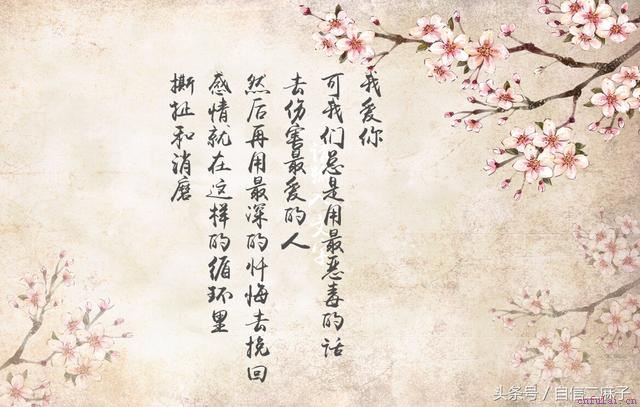 我爱你
可我们总是用最恶毒的话
去伤害最爱的人
然后再用最深的忏悔去挽回
感情就在这样的循环里
撕扯和消磨
头条号／自信二麻子
cnfulai.cn